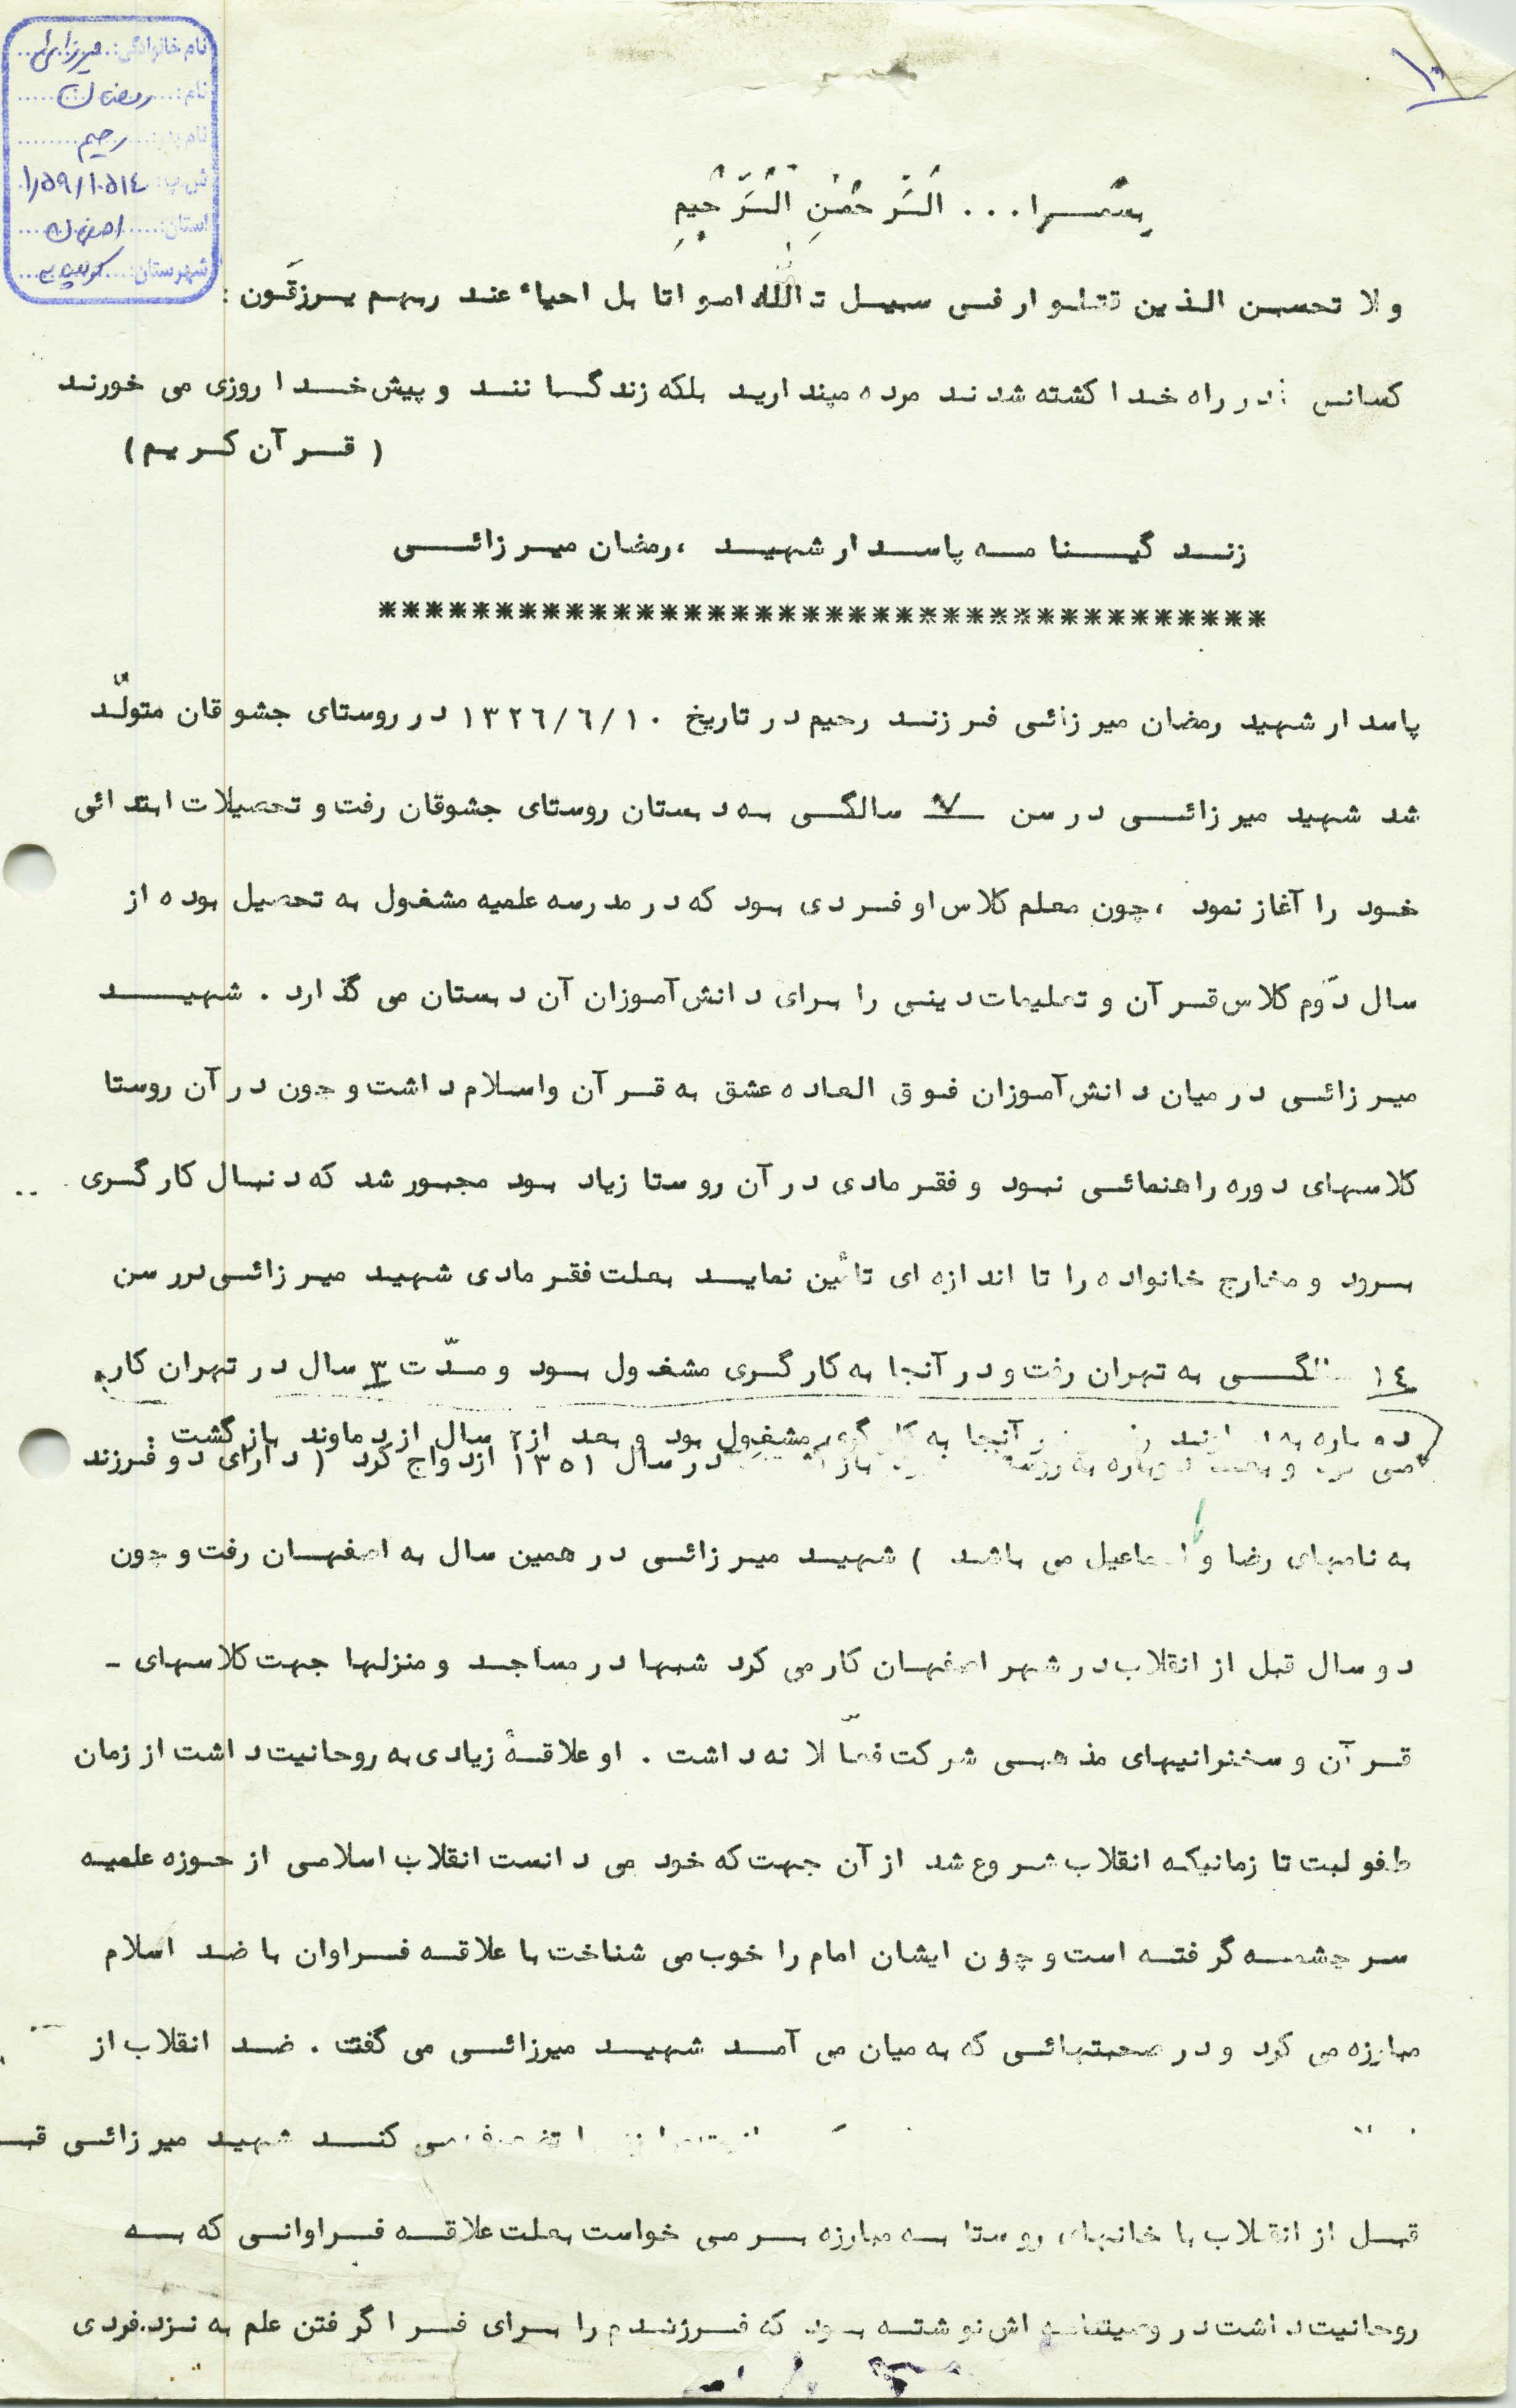 نام خانوادگی: میرزائی
نام: رمضان
نام پدر: رحیم
استان: اصفهان
شهرستان:
۱۰
بسم ا... الرَّحمٰنِ الرَّحیمِ
ولا تحسبن الذین قتلوا فی سبیل الله امواتا بل احیاء عند ربهم یرزقون :
کسانی در راه خدا کشته شدند مرده مپندارید بلکه زندگانند و پیش خدا روزی می خورند
( قرآن کریم )
زندگینامه پاسدار شهید ، رمضان میرزائی
**************************************
پاسدار شهید رمضان میرزائی فرزند رحیم در تاریخ ۱۳۲٦/٦/۱۰ در روستای جشوقان متولّد
شد شهید میرزائی در سن ۷ سالگی به دبستان روستای جشوقان رفت و تحصیلات ابتدائی
خود را آغاز نمود ، چون معلم کلاس او فردی بود که در مدرسه علمیه مشغول به تحصیل بوده از
سال دوّم کلاس قرآن و تعلیمات دینی را برای دانش آموزان آن دبستان می گذارد . شهید
میرزائی در میان دانش آموزان فوق العاده عشق به قرآن واسلام داشت و چون در آن روستا
کلاسهای دوره راهنمائی نبود و فقر مادی در آن روستا زیاد بود مجبور شد که دنبال کارگری
برود و مخارج خانواده را تا اندازه ای تأمین نماید بعلت فقر مادی شهید میرزائی در سن
۱٤ سالگی به تهران رفت و در آنجا به کارگری مشغول بود و مدّت ۳ سال در تهران کار
دوباره به دماوند آنجا به کارگری مشغول بود و بعد از ۲ سال از دماوند بازگشت .
می کرد و بعد دوباره به در سال ۱۳۵۱ ازدواج کرد ( دارای دو فرزند
به نامهای رضا و اسماعیل می باشد ) شهید میرزائی در همین سال به اصفهان رفت و چون
دو سال قبل از انقلاب در شهر اصفهان کار می کرد شبها در مساجد و منزلها جهت کلاسهای -
قرآن و سخنرانیهای مذهبی شرکت فعّالانه داشت . او علاقهٔ زیادی به روحانیت داشت از زمان
طفولیت تا زمانیکه انقلاب شروع شد از آن جهت که خود می دانست انقلاب اسلامی از حوزه علمیه
سرچشمه گرفته است و چون ایشان امام را خوب می شناخت با علاقه فراوان با ضد اسلام
مبارزه می کرد و در صحبتهائی که به میان می آمد شهید میرزائی می گفت . ضد انقلاب از
را تضعیف می کند شهید میرزائی قبـ
قبل از انقلاب با خانهای روستا به مبارزه بر می خواست بعلت علاقه فراوانی که به
روحانیت داشت در وصیتنامه اش نوشته بود که فرزندم را برای فرا گرفتن علم به نزد فردی